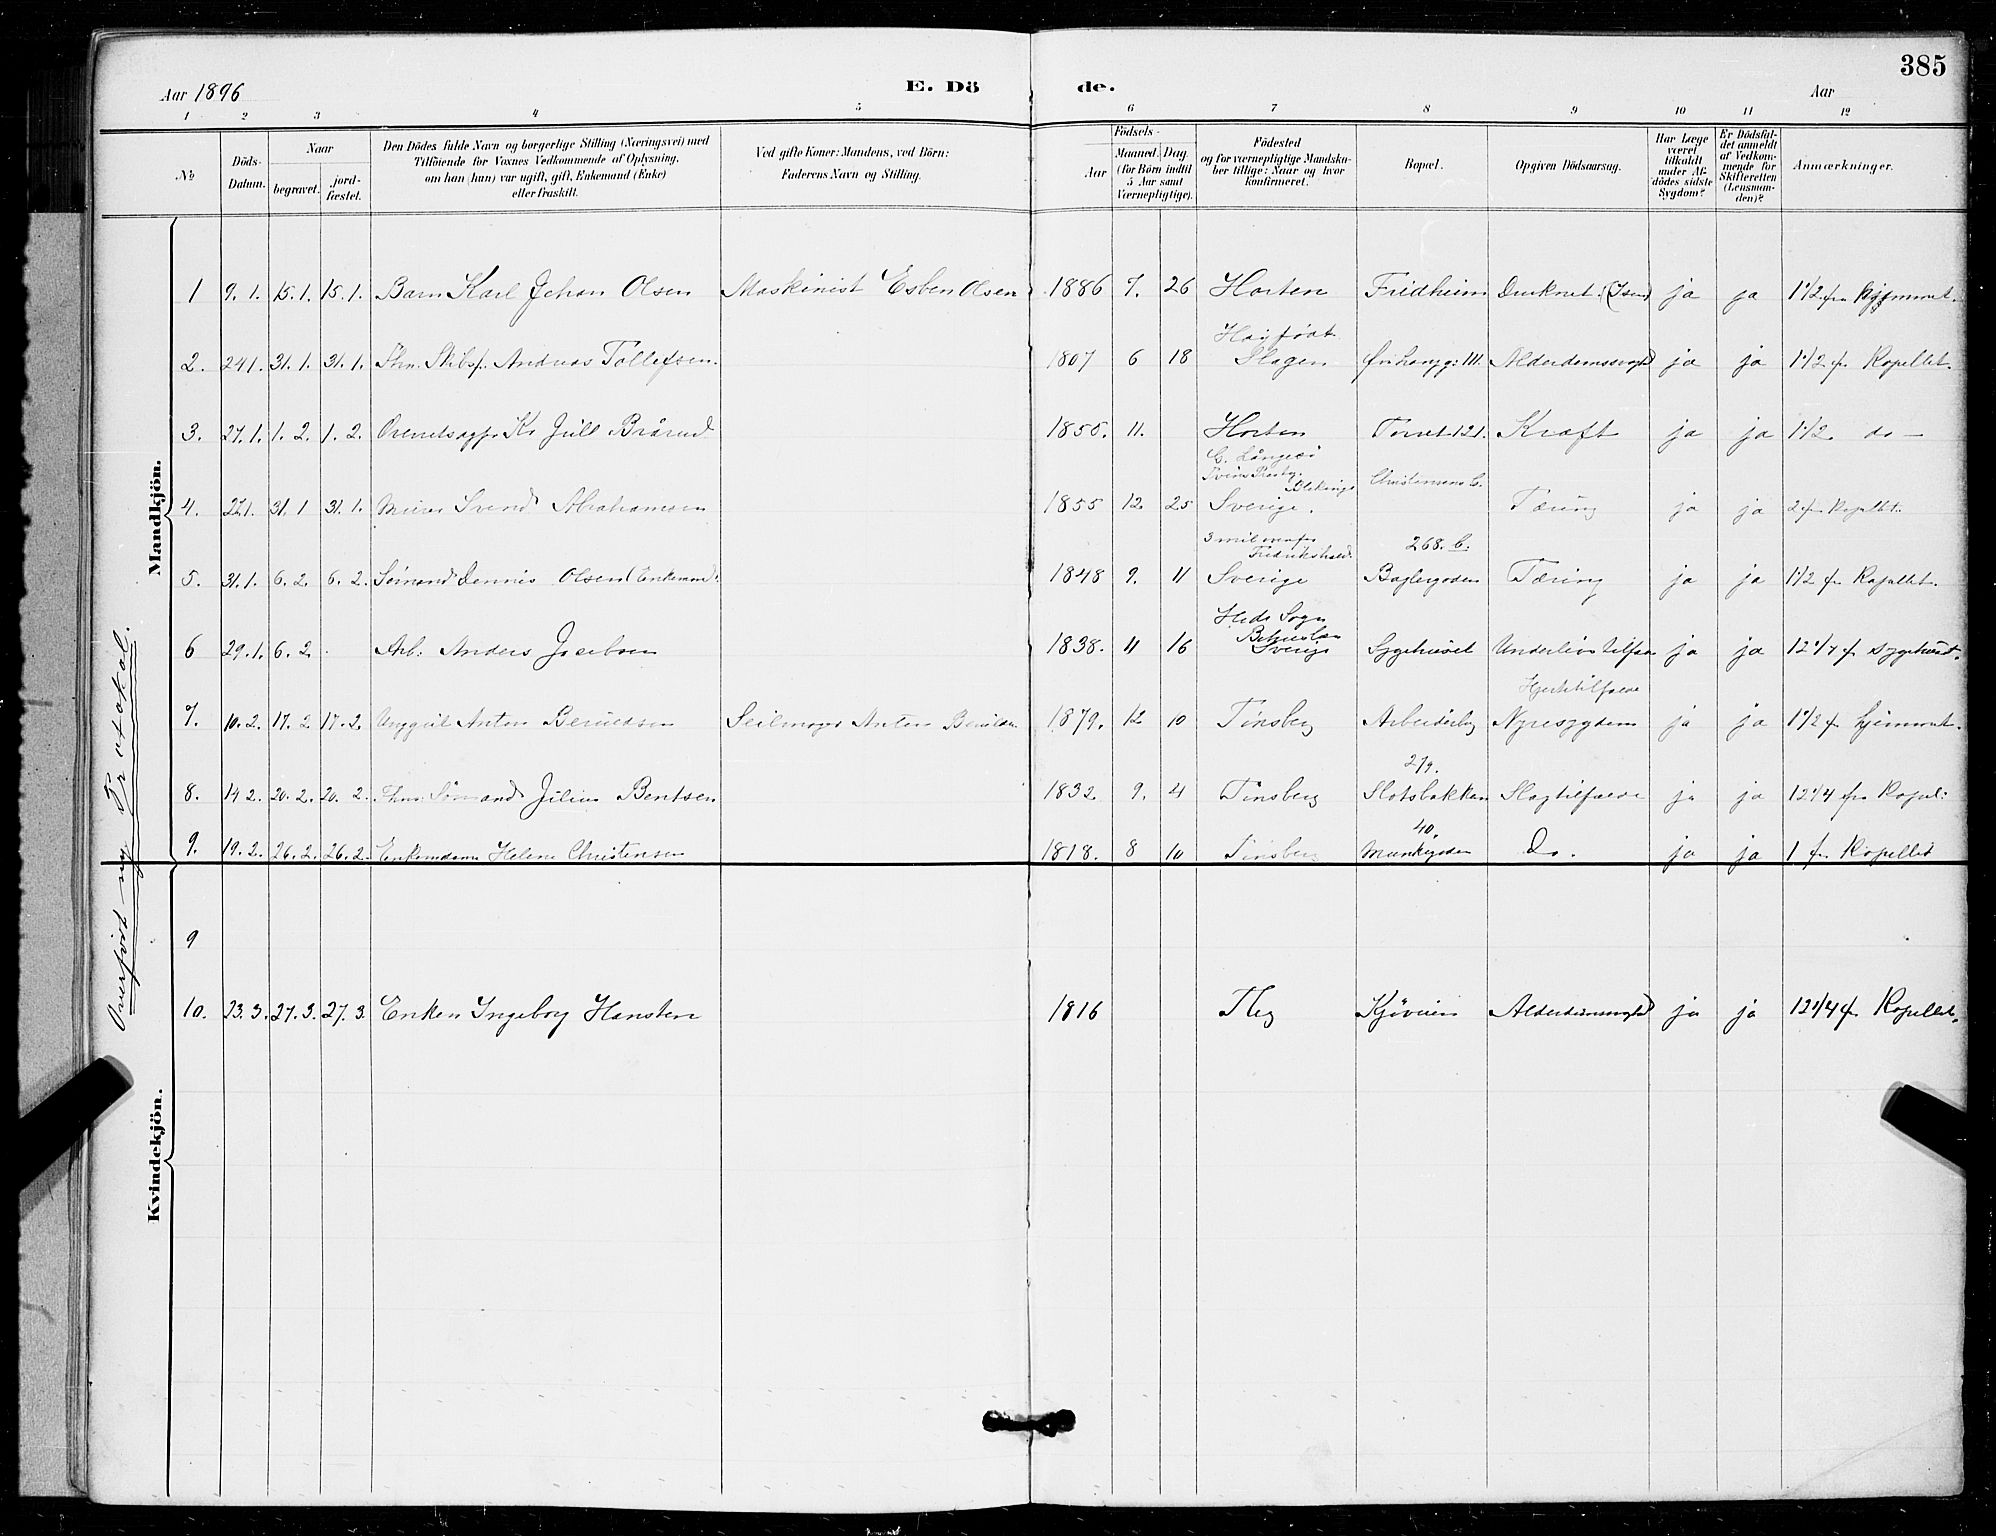 385
Aar 1896
E. Dö de.
Aar
1 2 3 4 5 6 7 8 9 10 11 12
No
Döds-Datum.
Naar
begravet.
jord-fæstet.
Den Dödes fulde Navn og borgerlige Stilling (Næringsvei) med
Tilföiende for Voxnes Vedkommende af Oplysning,
om han (hun) var ugift, gift, Enkemand (Enke)
eller fraskilt.
Ved gifte Koner: Mandens, ved Börn:
Faderens Navn og Stilling.
Födsels-
Aar
Maaned. Dag.
(for Börn indtil
5 Aar samt
Værnepligtige).
Födested
og for værnepligtige Mandska-
ber tillige: Naar og hvor
konfirmeret.
Bopæl.
Opgiven Dödsaarsag.
Har Læge
været
tilkaldt
under Af-
dödes sidste
Sygdom?
Er Dödsfal-
det anmeldt
af Vedkom-
mende for
Skifteretten
(Lensman-
den)?
Anmærkninger.
Mandkjön.
1 9. 1. 15. 1. 15. 1. Barn Karl Johan Olsen Maskinist Esben Olsen 1886 7. 26 Horten Fridheim Druknet ja ja 1 1/2 fra Hjemmet.
2. 24 1. 31. 1. 31. 1. Skibsf. Andreas Tollefsen. 1807 6 18 Slagen Alderdomssvaghed ja ja 1 1/2 fr Kapellet.
3. 27. 1. 1. 2. 1. 2. Kr Jull Brårud 1850. 11. Horten Torvet 121. Kræft ja ja 1 1/2 do —
4. 31. 1 31. 1. Murer Svend Abrahamsen 1855 12. 25 Blekinge Sverige. Christensens C. Tæring ja ja 2 fr Kapellet.
5. 31. 1. 6. 2. 6. 2. Sømand Dennis Olsen (Enkemand) 1848 9. 11 3 mil Fredrikshald. Sverige 268. C. Baglergaden Tæring ja ja 1 1/2 fr Kapellet.
6 29. 1. 6. 2. Arb. Anders Jacobsen 1838. 11 16 Sogn Sverige Sygehuset Underlivs tilfælde ja ja 12 1/4 fr sygehuset.
7. 10. 2. 17. 2 17. 2. Anton Seilmager Anton 1879. 12 10 Tønsberg Hjertetilfælde Nyresygdom ja ja 1 1/2 fr hjemmet.
8. 14 2. 20. 2. 20. 2. Sømand Julius Bentsen 1832. 9. 4 Tønsberg 279. Slotsbakken Slagtilfælde ja ja 12 1/4 fra Kapel:
9. 19. 2. 26. 2. 26. 2. Enkemadam Helene Christensen 1818. 8 10 Tønsberg 40. Munkegaden Do. ja ja 1 fr Kapellet
Overført ny Protokol.
Kvindekjön.
9
10. 23. 3. 27. 3. 27. 3. Enken Ingeborg Hansten 1816 Kjøveien Alderdomssvaghed ja ja 12 1/4 fr Kapellet.